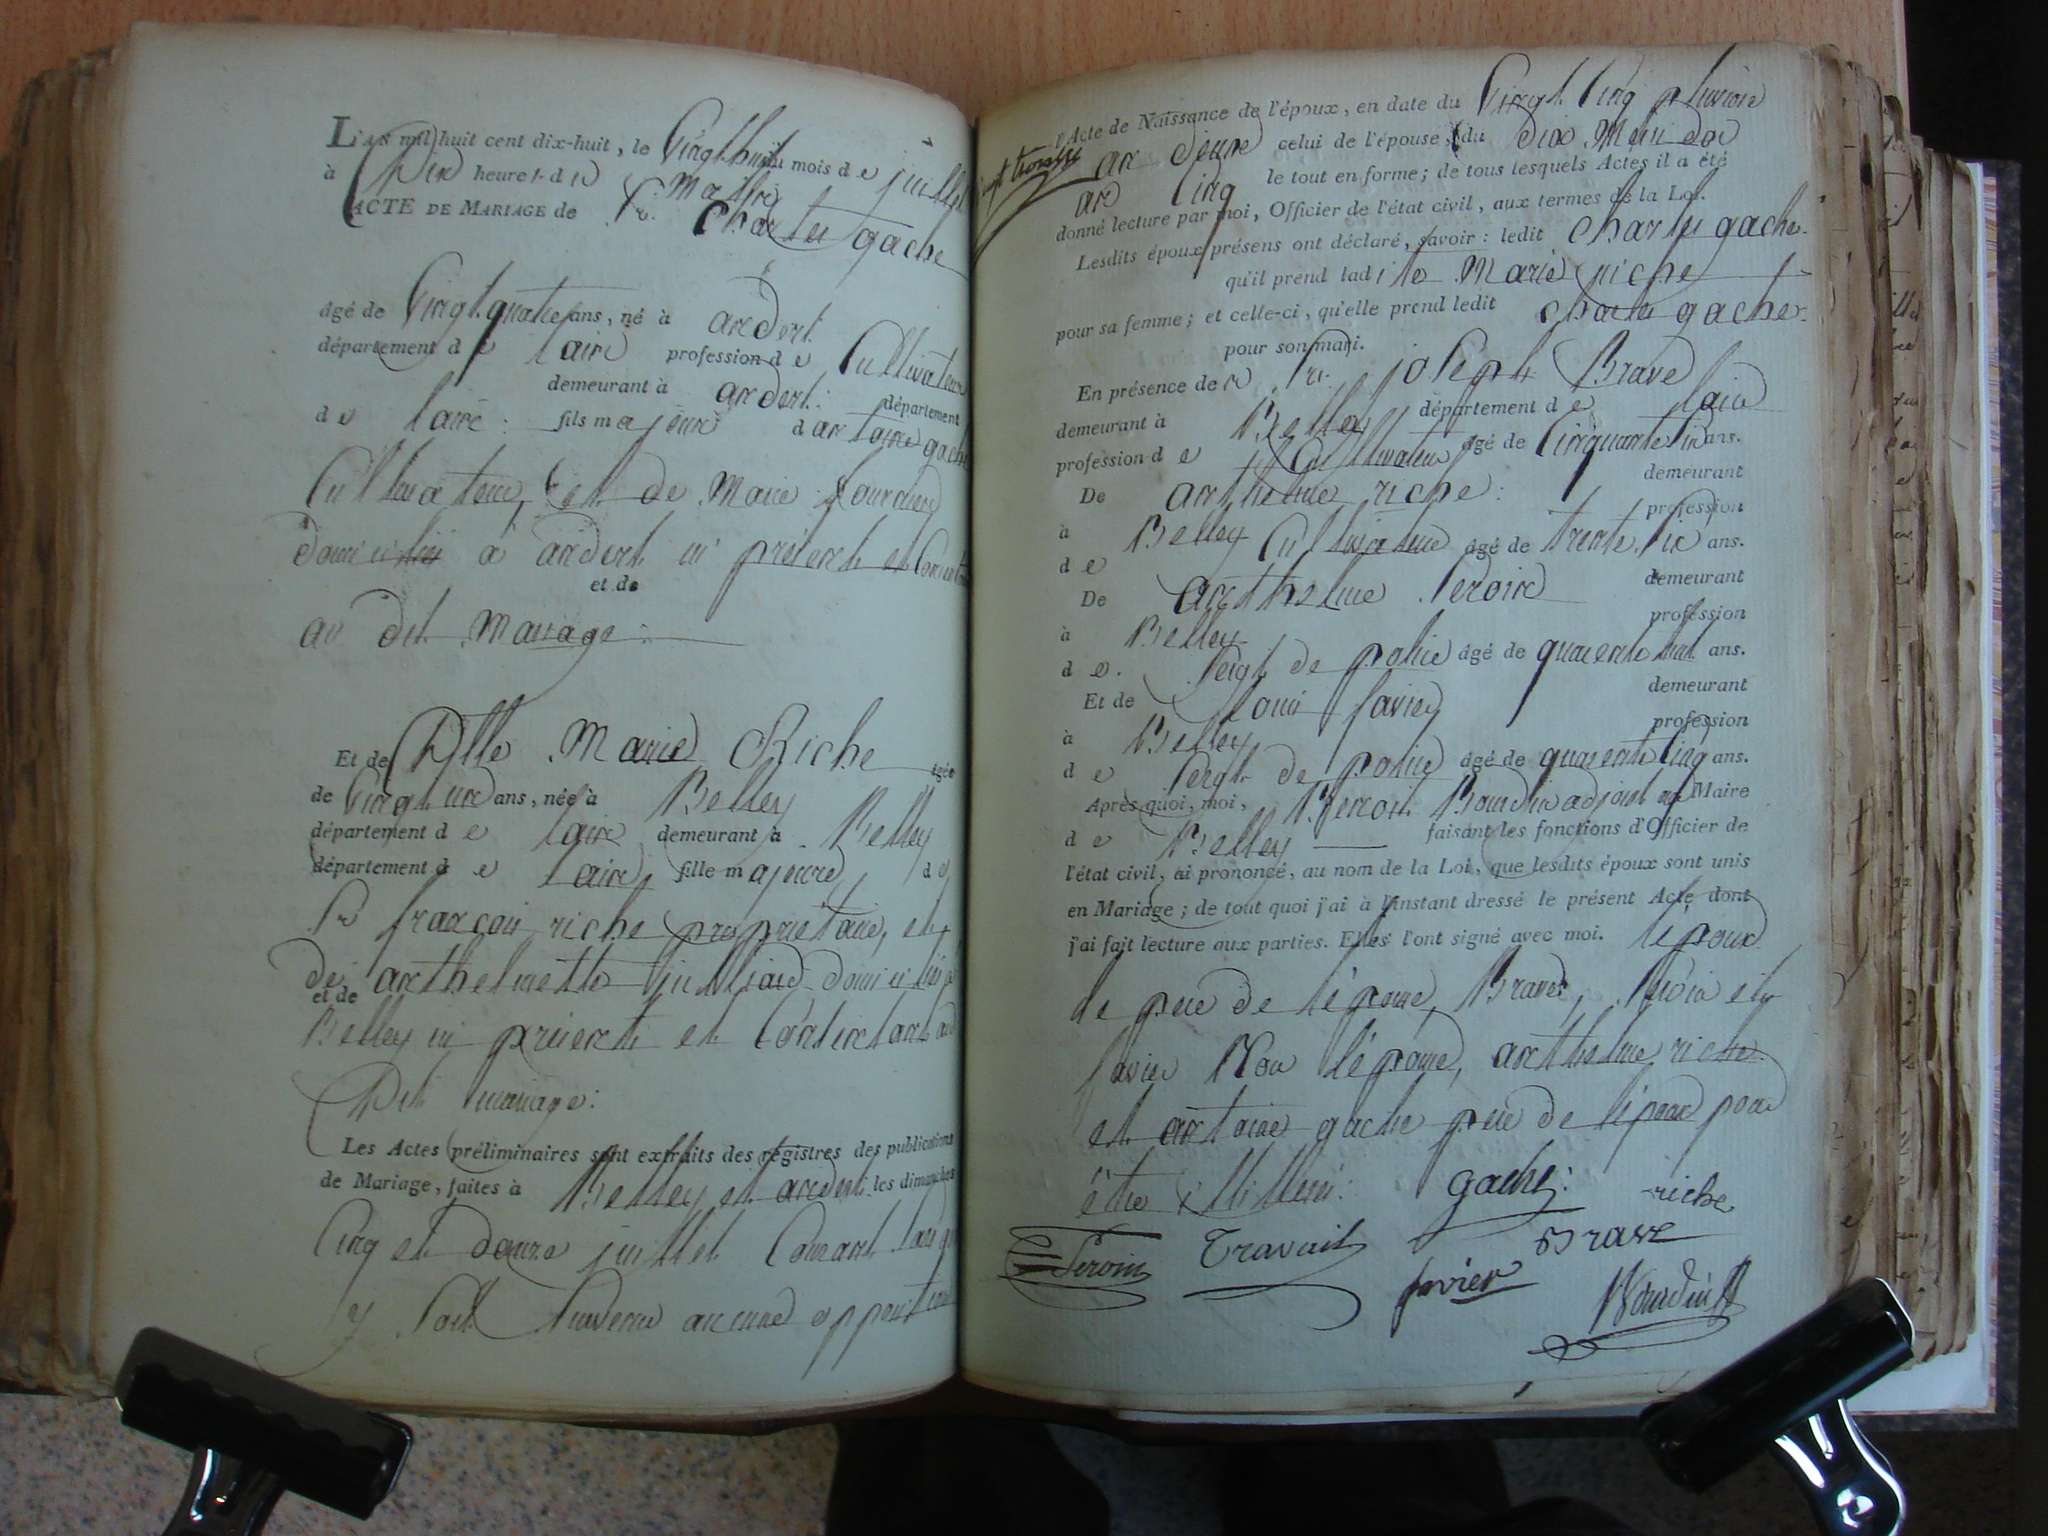 L'an mil huit cent dix-huit, le Vingt huit du mois de juillet
à Dix heures du matin
ACTE DE MARIAGE de Sr. Charles gache
âgé de Vingt quatre ans, né à andert
département de lain profession de Cultivateur
demeurant à andert. département
de lain: fils majeur dantoine gache
Cultivateur, et de Marie
domicilié à andert ici présent et Consentant
et de
au dit Mariage:
Et de Dlle Marie Riche âgée
de Vingt un ans, née à Belley
département de lain demeurant à Belley
département de lain, fille majeure de
Sr françois riche propriétaire, et
de anthelmette Juilliard domiciliés à
et de
Belley ici présents et Consentant au
Dit mariage:
Les Actes préliminaires sont extraits des registres des publications
de Mariage, faites à Belley et andert. les dimanches
Cinq et douze juillet Courant sans qu
y soit Survenu aucune opposition
l'Acte de Naissance de l'époux, en date du Vingt Cinq pluviose
an deux celui de l'épouse, du dix Messidor
an Cinq le tout en forme; de tous lesquels Actes il a été
donné lecture par moi, Officier de l'état civil, aux termes de la Loi.
Lesdits époux présens ont déclaré, savoir: ledit Charles gache
qu'il prend ladite Marie riche
pour sa femme; et celle-ci, qu'elle prend ledit Charles gache
pour son mari.
En présence de Sr. joseph Brave
demeurant à Belley département de lain
profession de Cultivateur âgé de Cinquante six ans.
De anthelme riche: demeurant
à Belley profession
de Cultivateur âgé de trente six ans.
De anthelme Peroin demeurant
à Belley profession
de. Sergt de police âgé de quarante huit ans.
Et de Louis favier demeurant
à Belley profession
de Sergt de police âgé de quarante Cinq ans.
Après quoi, moi, Benoit Bourdin adjoint au Maire
de Belley faisant les fonctions d'Officier de
l'état civil, ai prononcé, au nom de la Loi, que lesdits époux sont unis
en Mariage; de tout quoi j'ai à l'instant dressé le présent Acte dont
j'ai fait lecture aux parties. Elles l'ont signé avec moi. l'époux
le père de l'épouse, Brave, Peroin et
favier Non l'épouse, anthelme riche
et antoine gache père de l'époux pour
être illitérés: gache: riche
Peroin Travail Brave
favier Bourdin